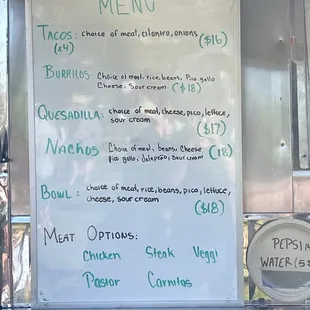 MENU
TACOS: choice of meat, cilantro, onions
(x4) ($16)
BURRITOS: Choice of meat, rice, beans, Pico gallo
Cheese, Sour cream ($18)
QUESADILLA: choice of meat, cheese, pico, lettuce,
sour cream
($17)
NACHOS Choice of meat, beans, Cheese
Pico gallo, Jalapeño, Sour cream (18)
BOWL: choice of meat, rice, beans, pico, lettuce,
cheese, sour cream
($18)
MEAT OPTIONS:
Chicken Steak Veggi
Pastor Carnitas
PEPSI
WATER (5